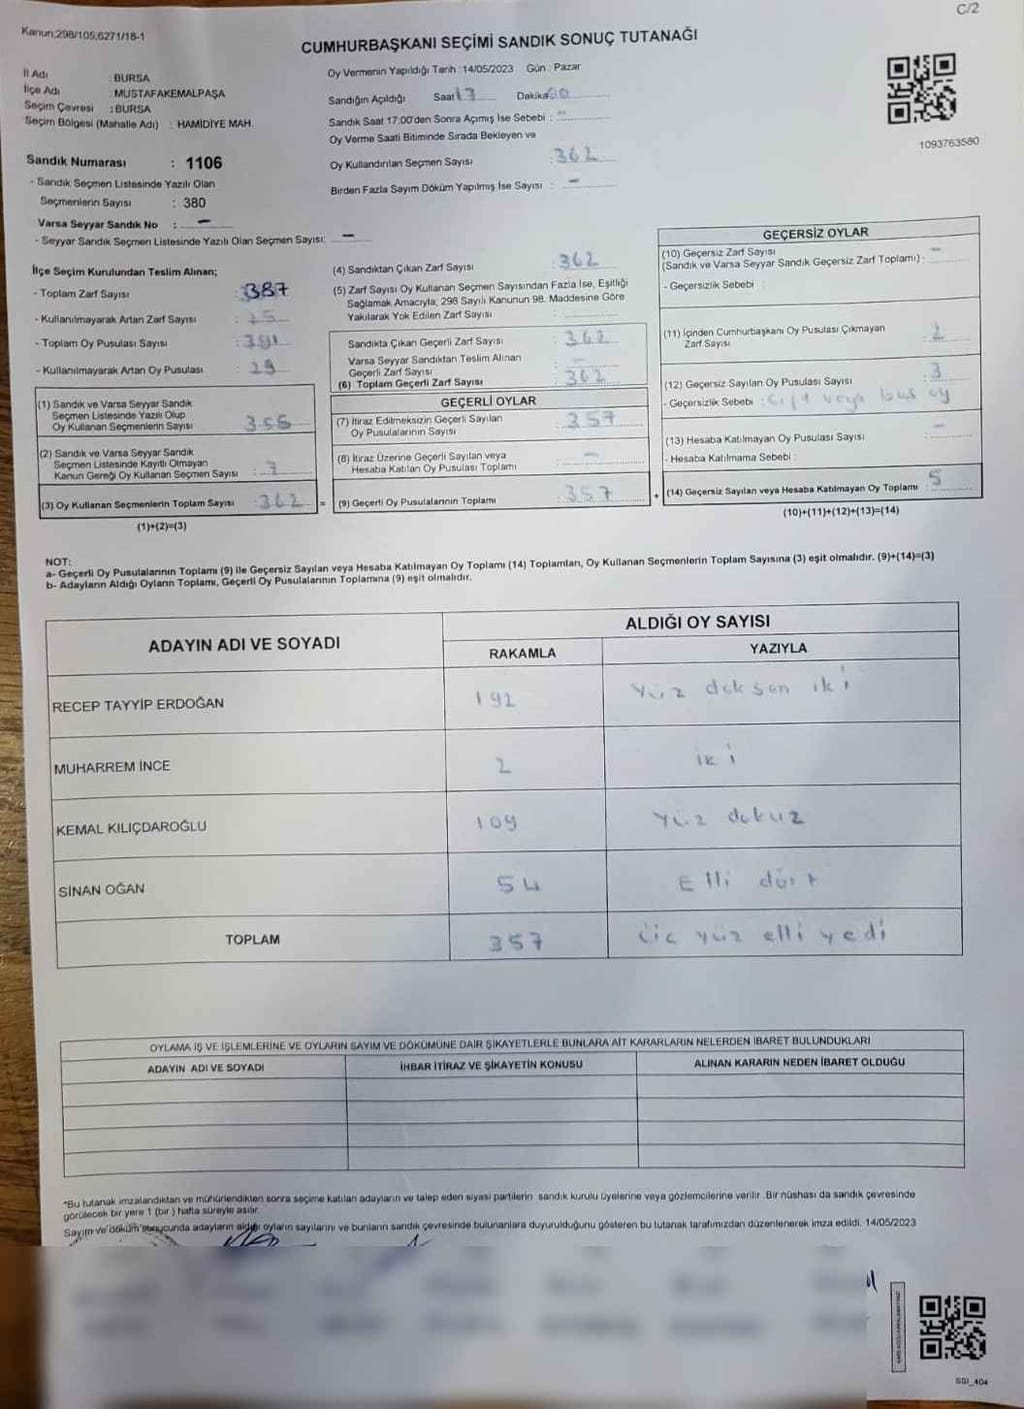 C/2
Kanun;298/105,6271/18-1
CUMHURBAŞKANI SEÇİMİ SANDIK SONUÇ TUTANAĞI
İl Adı : BURSA
İlçe Adı : MUSTAFAKEMALPAŞA
Seçim Çevresi : BURSA
Seçim Bölgesi (Mahalle Adı) : HAMİDİYE MAH.
Oy Vermenin Yapıldığı Tarih :14/05/2023 Gün : Pazar
Sandığın Açıldığı Saat 17 Dakika 00
Sandık Saat 17:00'den Sonra Açımış İse Sebebi : -
Oy Verme Saati Bitiminde Sırada Bekleyen ve
Oy Kullandırılan Seçmen Sayısı : 362
Birden Fazla Sayım Döküm Yapılmış İse Sayısı : -
1093763580
Sandık Numarası : 1106
- Sandık Seçmen Listesinde Yazılı Olan
Seçmenlerin Sayısı : 380
Varsa Seyyar Sandık No : -
- Seyyar Sandık Seçmen Listesinde Yazılı Olan Seçmen Sayısı: -
İlçe Seçim Kurulundan Teslim Alınan;
- Toplam Zarf Sayısı : 387
- Kullanılmayarak Artan Zarf Sayısı : 25
- Toplam Oy Pusulası Sayısı : 391
- Kullanılmayarak Artan Oy Pusulası : 29
(1) Sandık ve Varsa Seyyar Sandık
Seçmen Listesinde Yazılı Olup
Oy Kullanan Seçmenlerin Sayısı : 355
(2) Sandık ve Varsa Seyyar Sandık
Seçmen Listesinde Kayıtlı Olmayan
Kanun Gereği Oy Kullanan Seçmen Sayısı : 7
(3) Oy Kullanan Seçmenlerin Toplam Sayısı : 362 =
(1)+(2)=(3)
(4) Sandıktan Çıkan Zarf Sayısı : 362
(5) Zarf Sayısı Oy Kullanan Seçmen Sayısından Fazla İse, Eşitliği
Sağlamak Amacıyla; 298 Sayılı Kanunun 98. Maddesine Göre
Yakılarak Yok Edilen Zarf Sayısı :
Sandıkta Çıkan Geçerli Zarf Sayısı : 362
Varsa Seyyar Sandıktan Teslim Alınan
Geçerli Zarf Sayısı : -
(6) Toplam Geçerli Zarf Sayısı : 362
GEÇERLİ OYLAR
(7) İtiraz Edilmeksizin Geçerli Sayılan
Oy Pusulalarının Sayısı : 357
(8) İtiraz Üzerine Geçerli Sayılan veya
Hesaba Katılan Oy Pusulası Toplamı : -
(9) Geçerli Oy Pusulalarının Toplamı : 357 +
GEÇERSİZ OYLAR
(10) Geçersiz Zarf Sayısı
(Sandık ve Varsa Seyyar Sandık Geçersiz Zarf Toplamı) : -
- Geçersizlik Sebebi :
(11) İçinden Cumhurbaşkanı Oy Pusulası Çıkmayan
Zarf Sayısı : 2
(12) Geçersiz Sayılan Oy Pusulası Sayısı : 3
- Geçersizlik Sebebi : Çift veya boş oy
(13) Hesaba Katılmayan Oy Pusulası Sayısı : -
- Hesaba Katılmama Sebebi :
(14) Geçersiz Sayılan veya Hesaba Katılmayan Oy Toplamı : 5
(10)+(11)+(12)+(13)=(14)
NOT:
a- Geçerli Oy Pusulalarının Toplamı (9) ile Geçersiz Sayılan veya Hesaba Katılmayan Oy Toplamı (14) Toplamları, Oy Kullanan Seçmenlerin Toplam Sayısına (3) eşit olmalıdır. (9)+(14)=(3)
b- Adayların Aldığı Oyların Toplamı, Geçerli Oy Pusulalarının Toplamına (9) eşit olmalıdır.
ADAYIN ADI VE SOYADI ALDIĞI OY SAYISI
RAKAMLA YAZIYLA
RECEP TAYYİP ERDOĞAN 192 Yüz doksan iki
MUHARREM İNCE 2 iki
KEMAL KILIÇDAROĞLU 109 Yüz dokuz
SİNAN OĞAN 54 Elli dört
TOPLAM 357 Üç yüz elli yedi
OYLAMA İŞ VE İŞLEMLERİNE VE OYLARIN SAYIM VE DÖKÜMÜNE DAİR ŞİKAYETLERLE BUNLARA AİT KARARLARIN NELERDEN İBARET BULUNDUKLARI
ADAYIN ADI VE SOYADI İHBAR İTİRAZ VE ŞİKAYETİN KONUSU ALINAN KARARIN NEDEN İBARET OLDUĞU
"Bu tutanak imzalandıktan ve mühürlendikten sonra seçime katılan adayların ve talep eden siyasi partilerin sandık kurulu üyelerine veya gözlemcilerine verilir. Bir nüshası da sandık çevresinde
görülecek bir yere 1 (bir) hafta süreyle asılır.
Sayım ve döküm sonucunda adayların aldığı oyların sayılarını ve bunların sandık çevresinde bulunanlara duyurulduğunu gösteren bu tutanak tarafımızdan düzenlenerek imza edildi. 14/05/2023
SSI_404